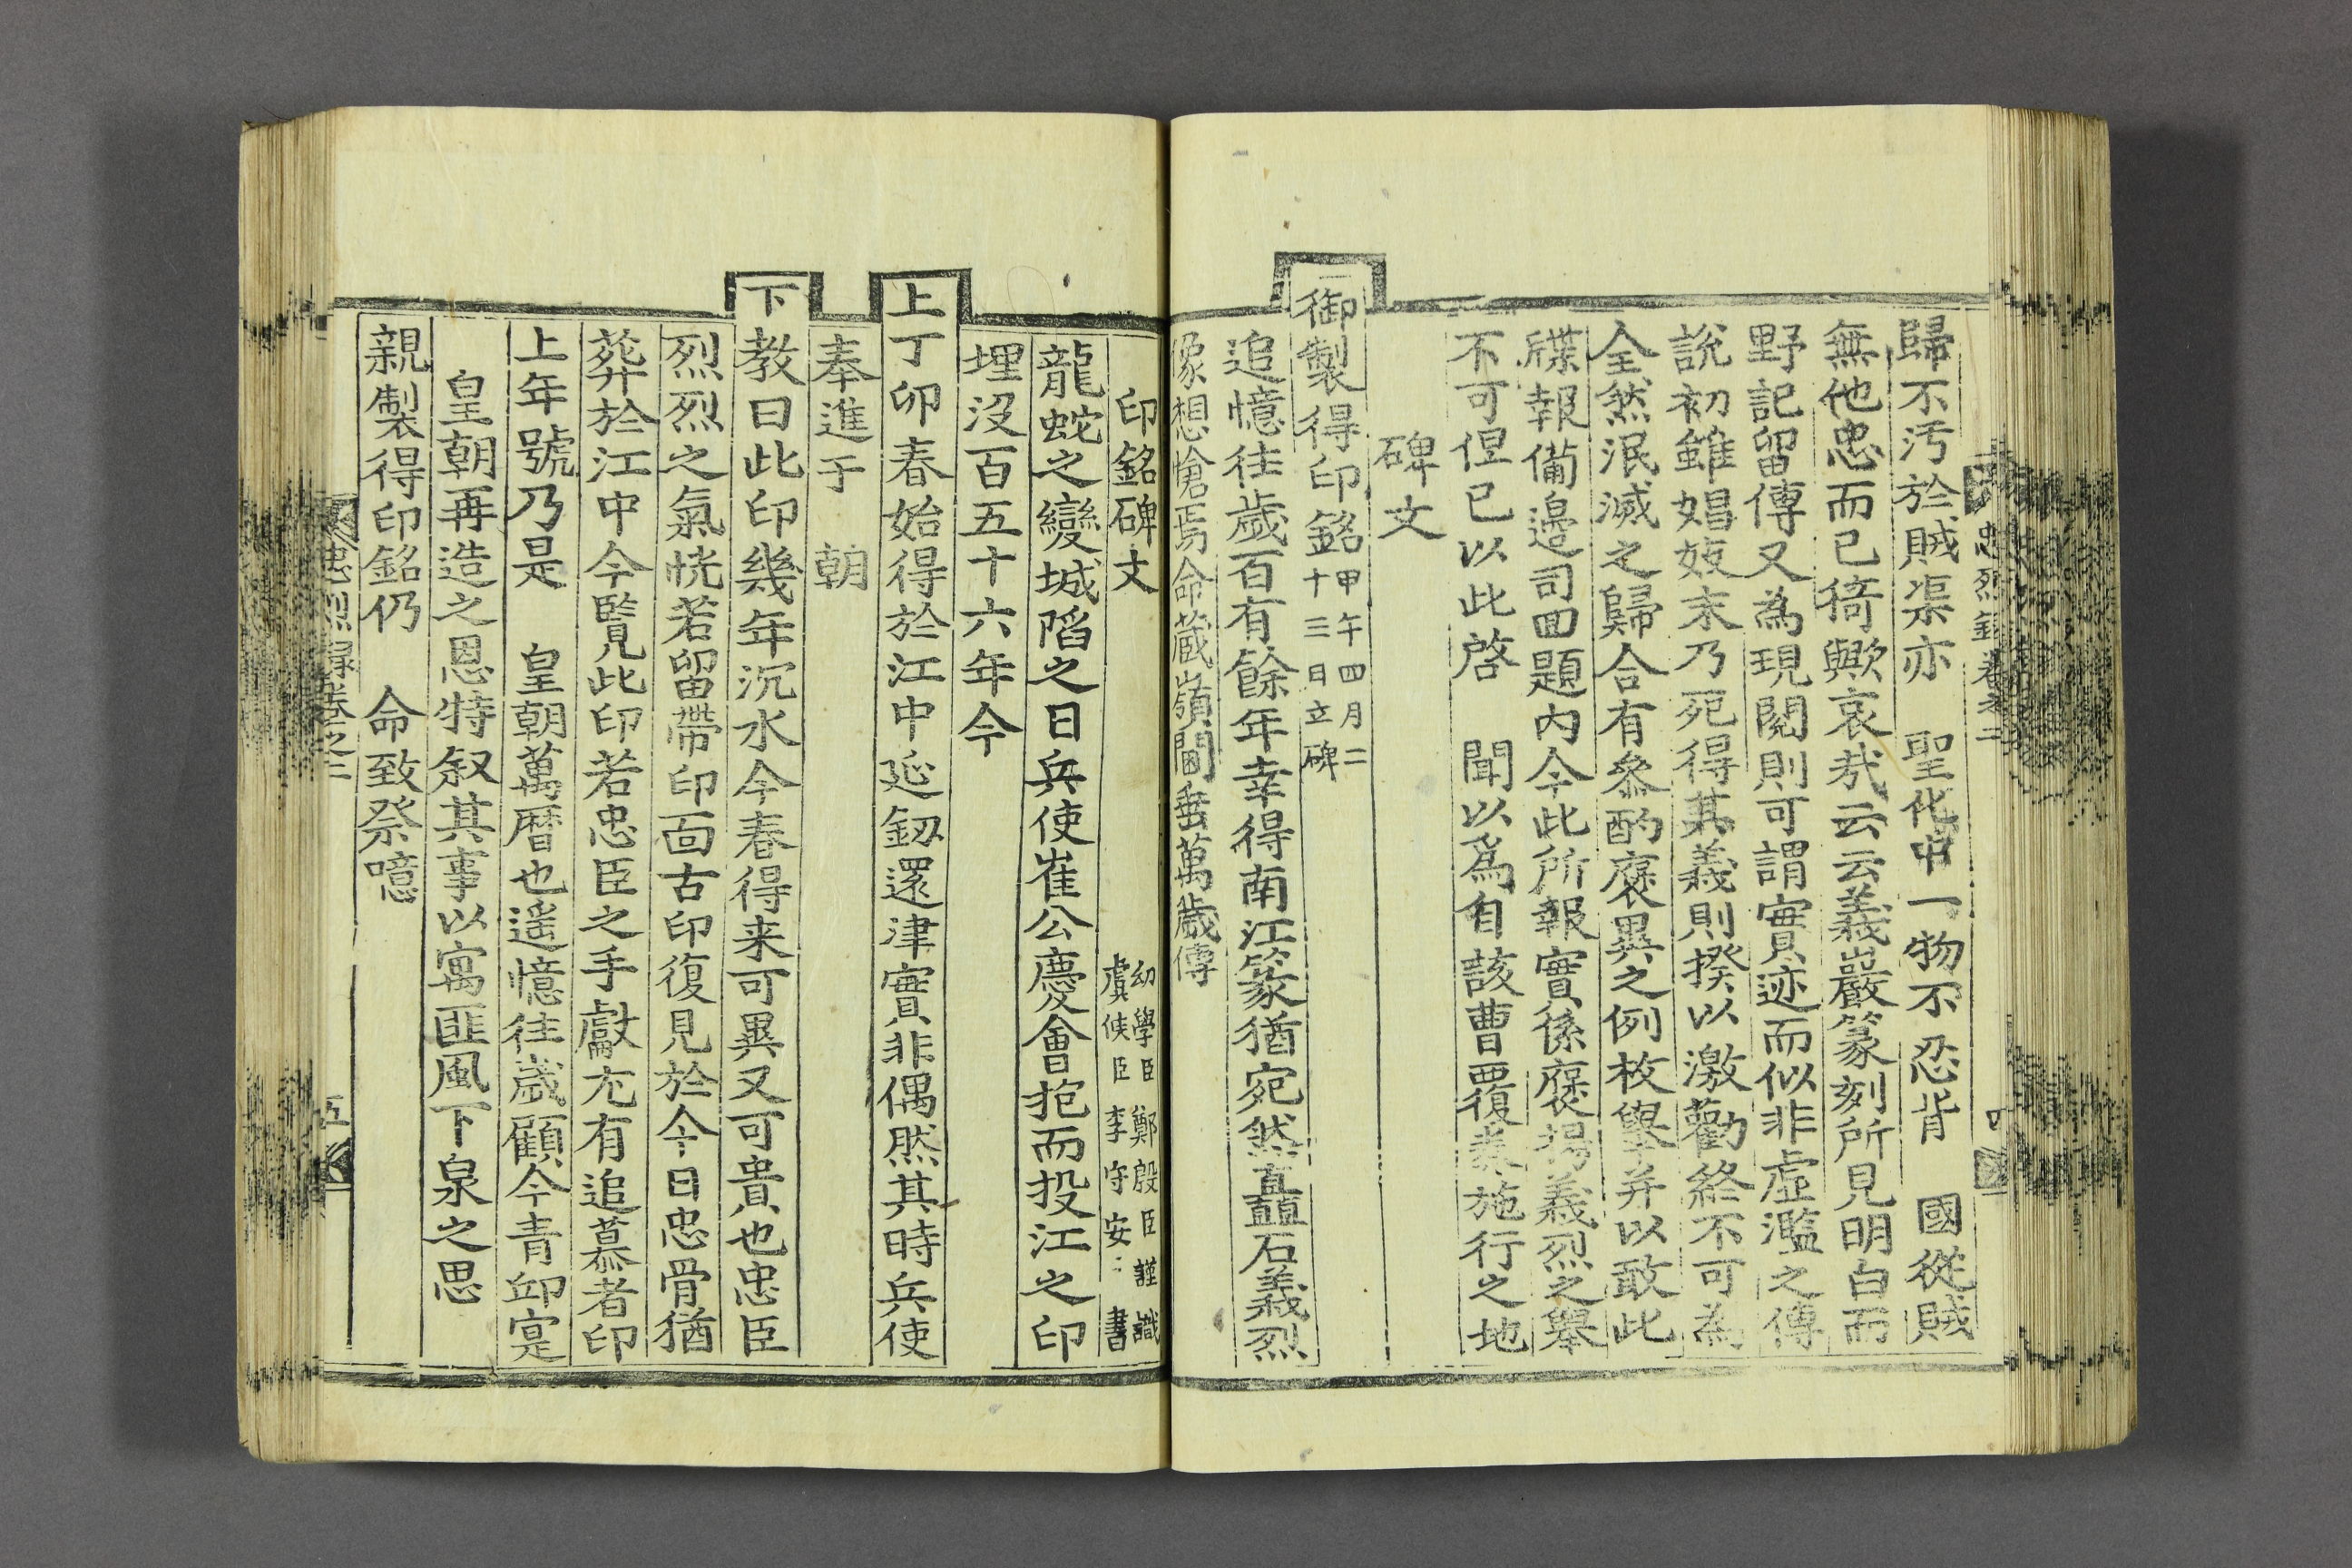 忠烈錄卷之二
四
歸不汚於賊渠亦 聖化中一物不忍背 國從賊
無他忠而已猗歟哀哉云云義巖篆刻所見明白而
野記留傳又為現閱則可謂實迹而似非虛濫之傳
說初雖娼妓末乃死得其義則揆以激勸終不可為
全然泯滅之歸合有參酌褒異之例枚擧幷以敢此
牒報備邊司回題內今此所報實係褒揚義烈之擧
不可但已以此啓 聞以爲自該曹覆奏施行之地
碑文
御製得印銘 甲午四月二
十三日立碑
追憶往歲百有餘年幸得南江篆猶宛然矗石義烈
像想愴焉命蔵嶺閫垂萬歲傳
印銘碑文
幼學臣鄭殷臣謹識
虞候臣李守安書
龍蛇之變城陷之日兵使崔公慶會抱而投江之印
埋沒百五十六年今
上丁卯春始得於江中延釰還津實非偶然其時兵使
奉進于 朝
下教曰此印幾年沉水今春得来可異又可貴也忠臣
烈烈之氣恍若留帶印面古印復見於今日忠骨猶
葬於江中今覧此印若忠臣之手獻尤有追慕者印
上年號乃是 皇朝萬曆也遥憶往歲顧今青邱寔
皇朝再造之恩特叙其事以寓匪風下泉之思
親製得印銘仍 命致祭噫
忠烈錄卷之二
五